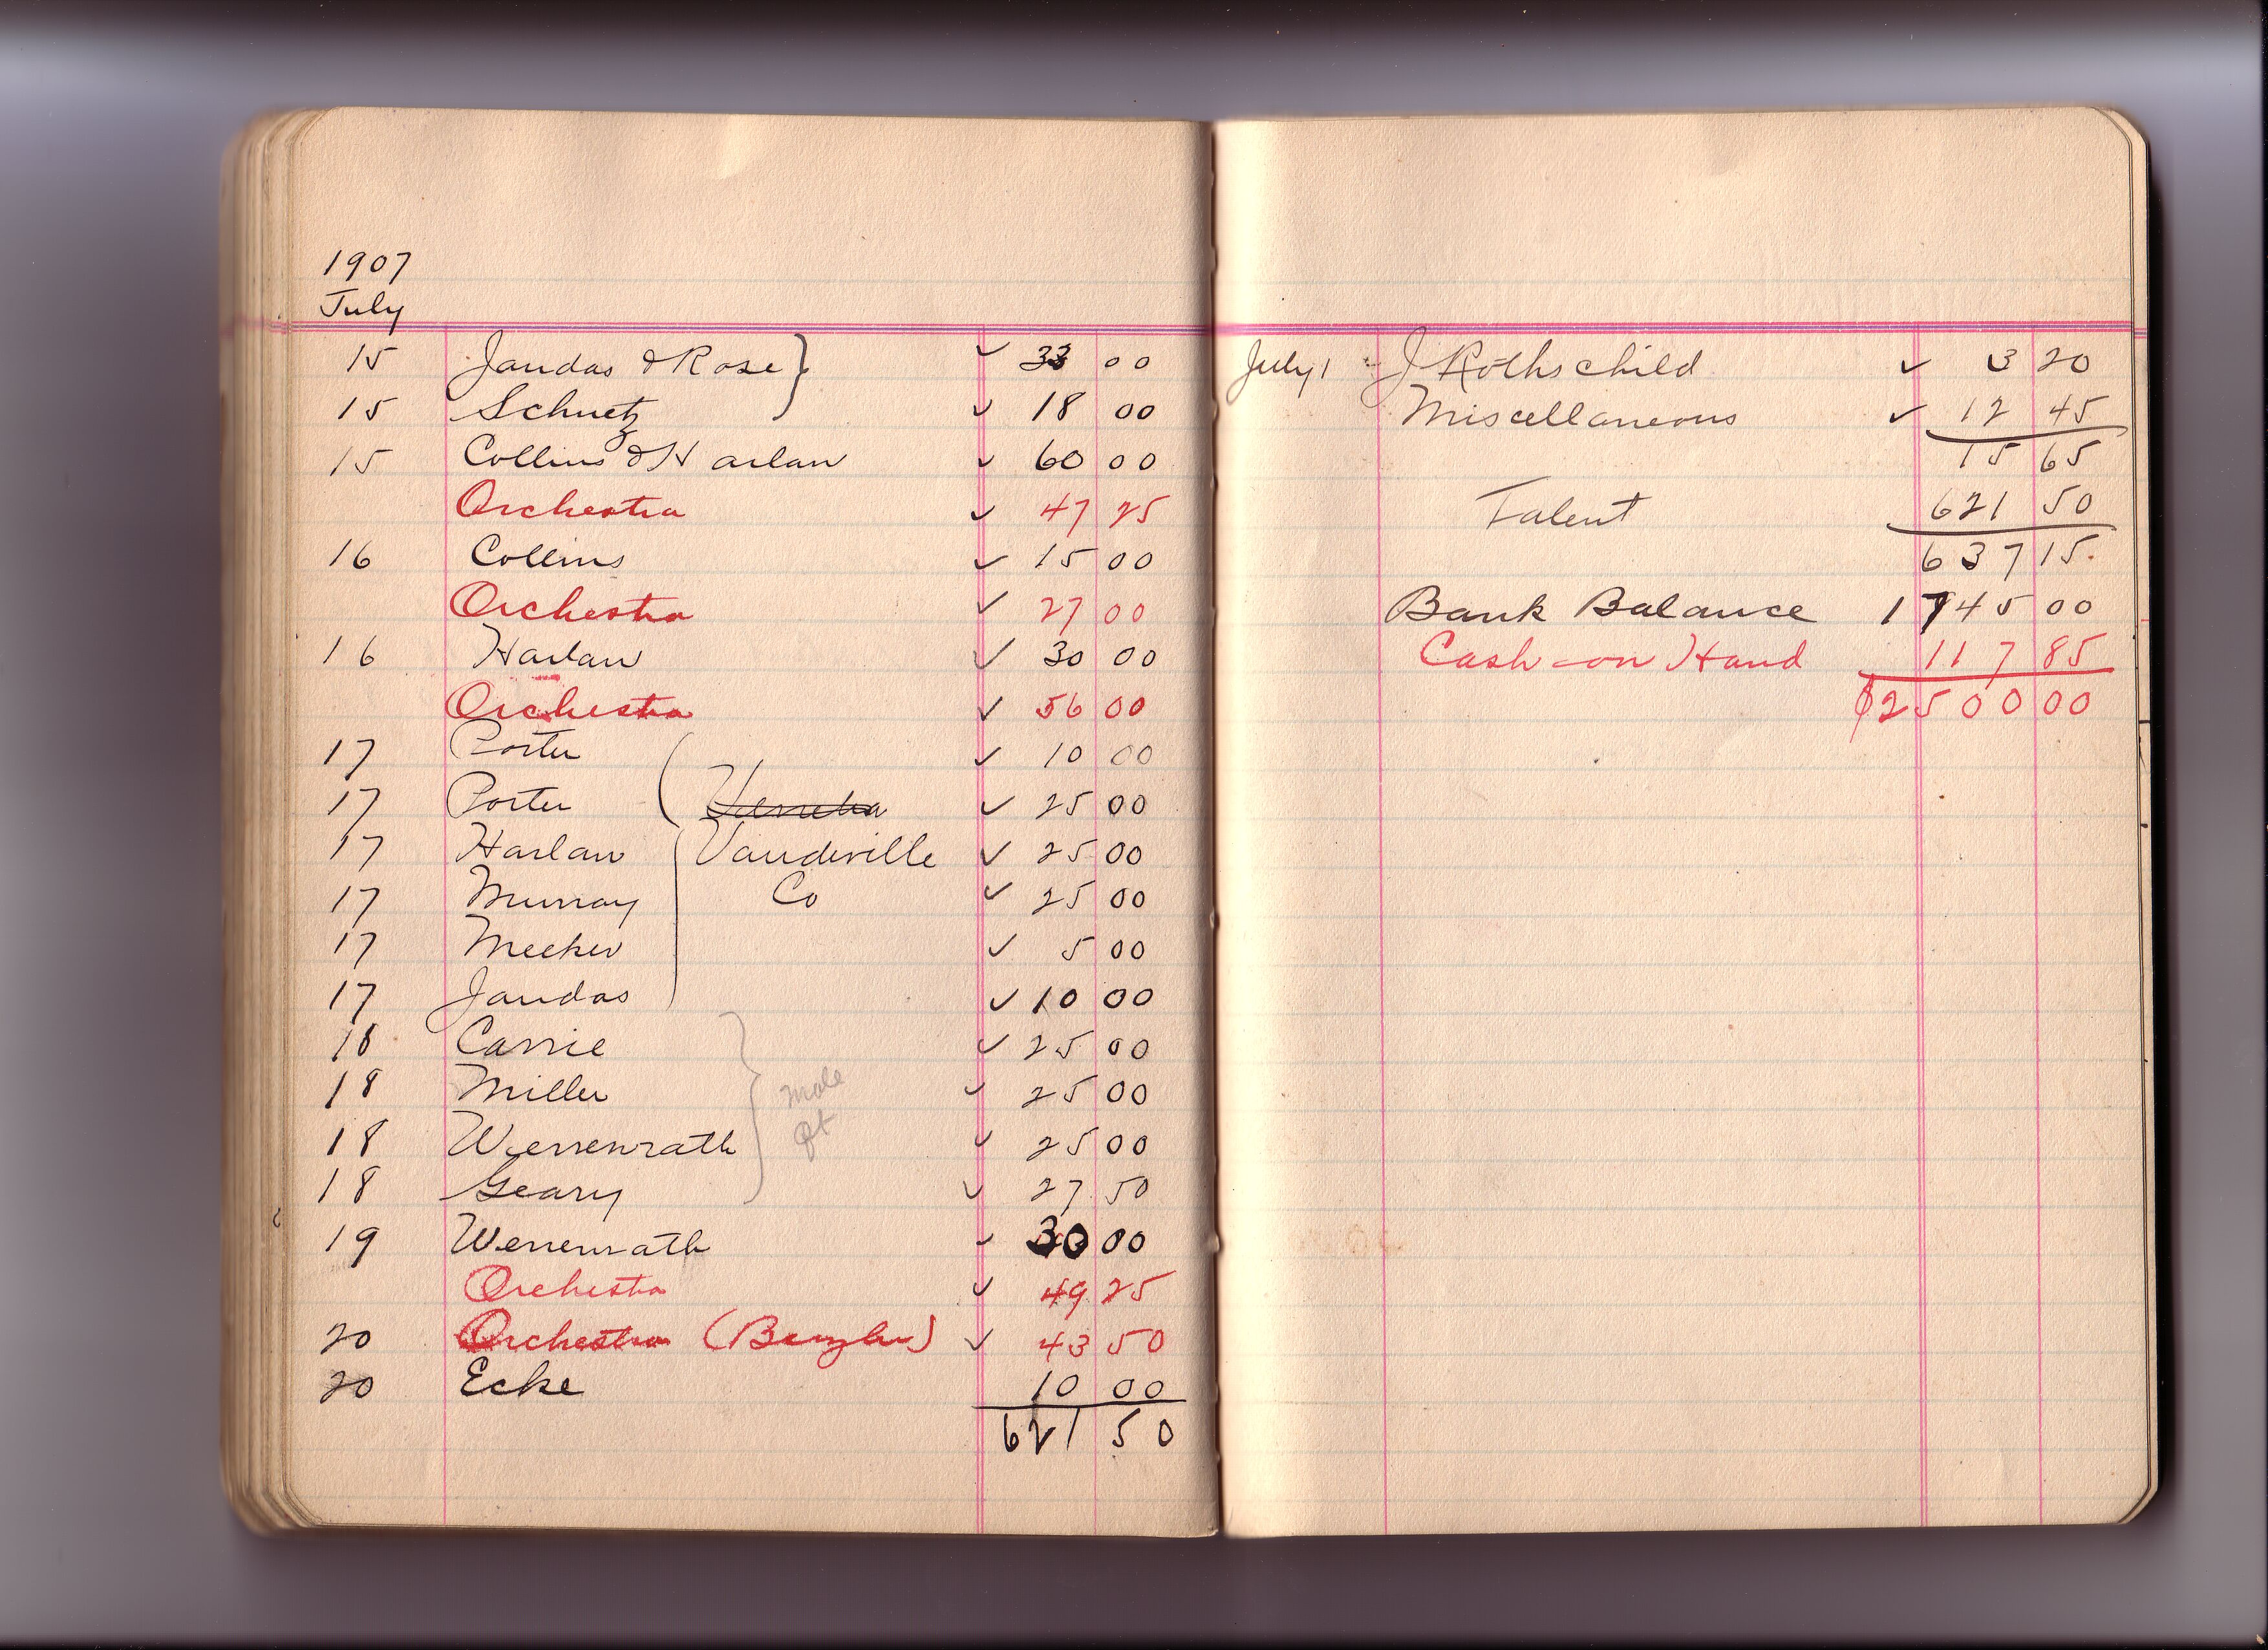 1907
July
15 Jandas & Rose } ✓ 33 00
15 Schuetz ✓ 18 00
15 Collins & Harlan ✓ 60 00
Orchestra ✓ 47 25
16 Collins ✓ 15 00
Orchestra ✓ 27 00
16 Harlan ✓ 30 00
Orchestra ✓ 56 00
17 Porter ✓ 10 00
17 Porter ✓ 25 00
17 Harlan Vaudeville ✓ 25 00
17 Murray Co ✓ 25 00
17 Meeker ✓ 5 00
17 Jandas ✓ 10 00
18 Carrie ✓ 25 00
18 Miller male ✓ 25 00
18 Werrenrath qt ✓ 25 00
18 Geary ✓ 27 50
19 Werrenrath ✓ 30 00
Orchestra ✓ 49 25
20 Orchestra ✓ 43 50
20 Ecke 10 00
621 50
July 1 J Rothschild ✓ 3 20
Miscellaneous ✓ 12 45
15 65
Talent 621 50
637 15
Bank Balance 1745 00
Cash on Hand 117 85
$2500 00